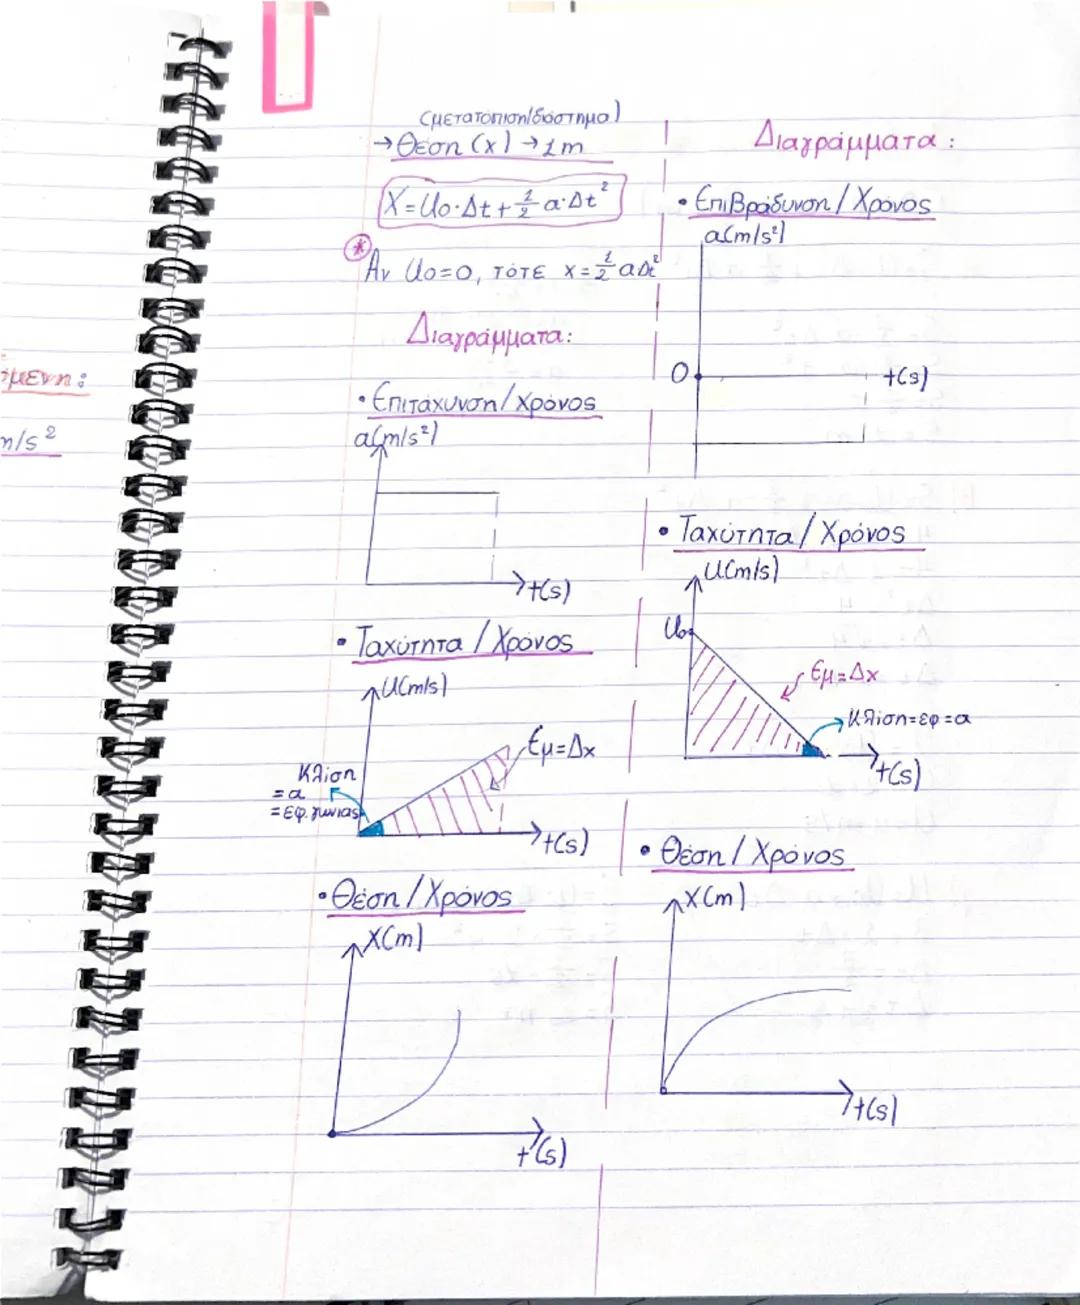 (μετατοπιση/διάστημα)
→Θέση (x) → 1m
X=U₀·Δt+½ a·Δt²
* Αν U₀=0, τότε x=½ aΔt²
Διαγράμματα:
• Επιτάχυνση/Χρόνος
a(m/s²)
t(s)
• Ταχύτητα / Χρόνος
U(m/s)
Εμ=Δx
Κλίση
=a
=εφ.γωνίας
t(s)
• Θέση / Χρόνος
X(m)
t(s)
Διαγράμματα:
• Επιβράδυνση / Χρόνος
a(m/s²)
0
t(s)
• Ταχύτητα / Χρόνος
U(m/s)
U₀
Εμ=Δx
Κλίση=εφ=a
t(s)
• Θέση / Χρόνος
X(m)
t(s)
όμενη:
m/s²